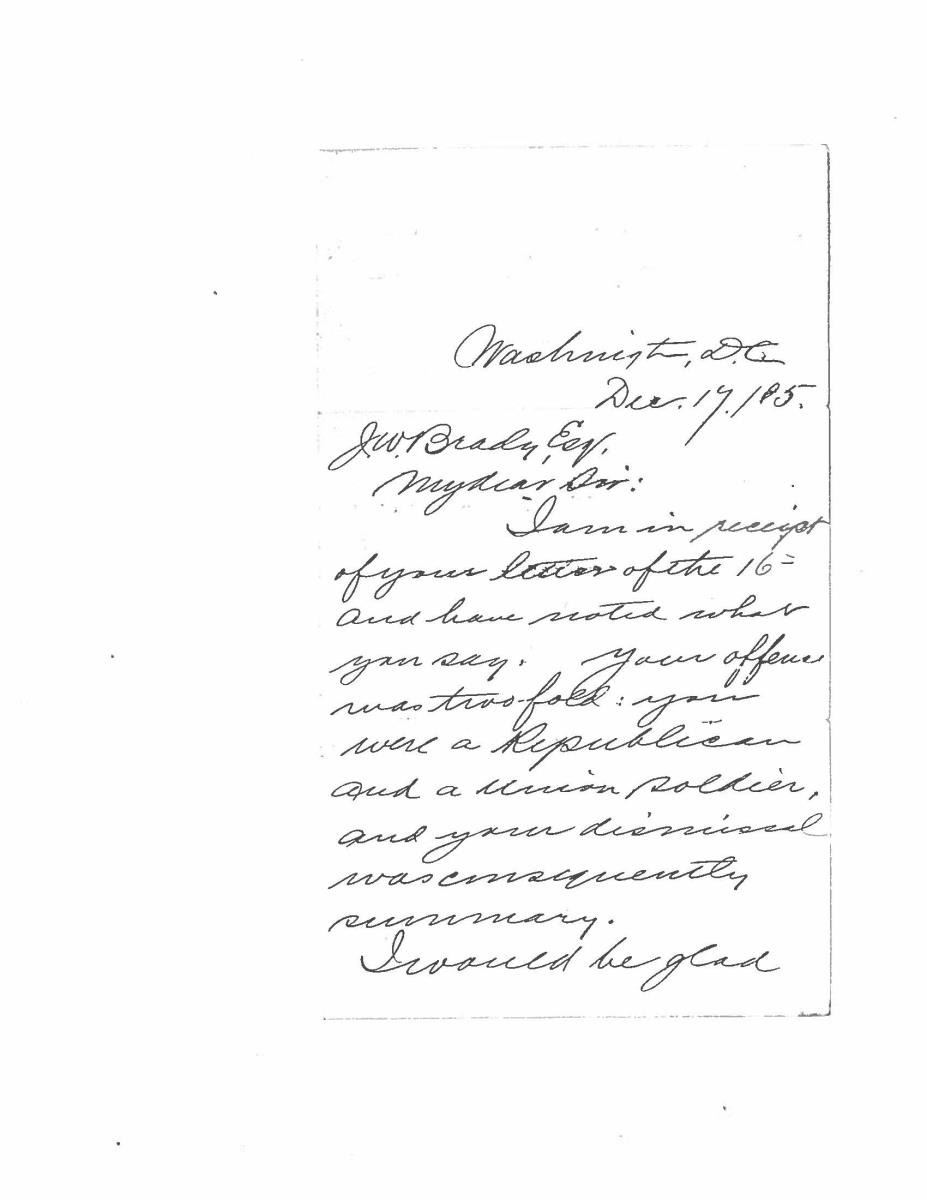 Washington, D.C.
Dec. 17, /85.
J.W. Brady, Esq.
My dear Sir:
I am in receipt
of your letter of the 16=
and have noted what
you say. Your offense
was two-fold: you
were a Republican
and a Union soldier,
and your dismissal
was consequently
summary.
I would be glad